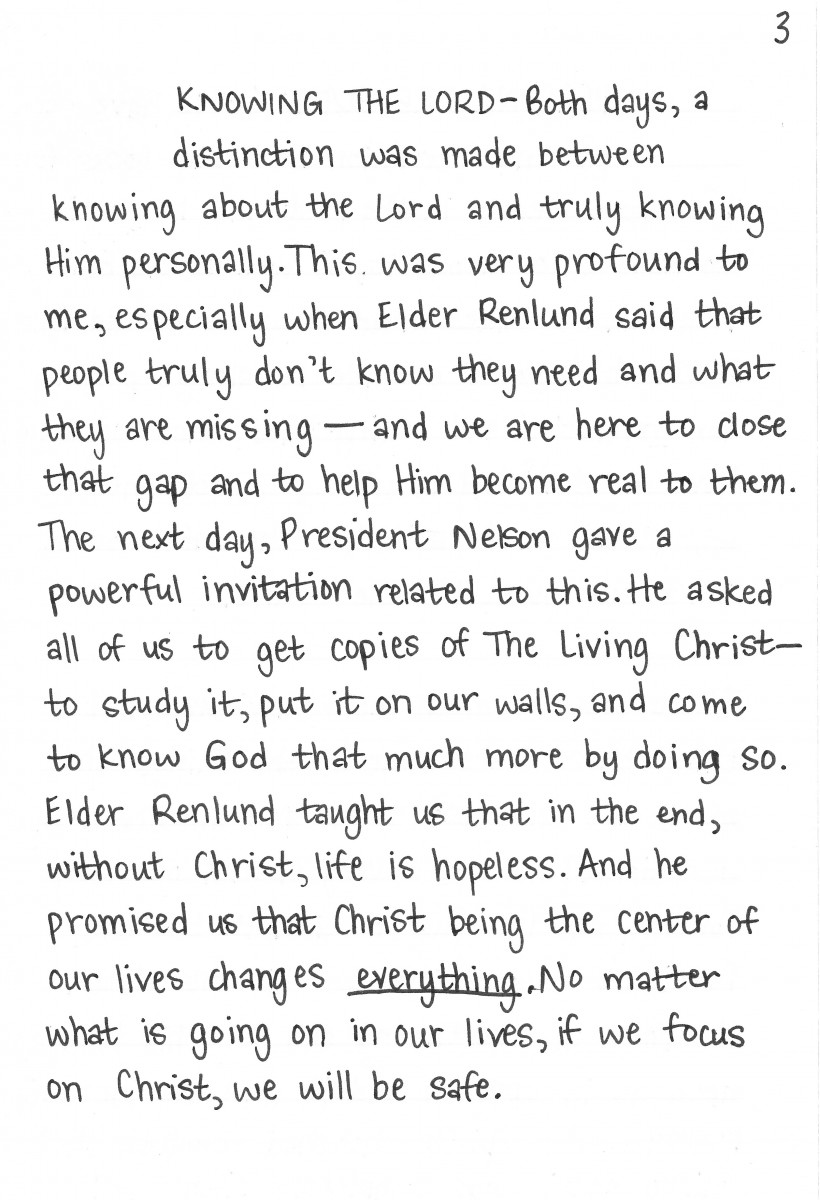 3
KNOWING THE LORD-Both days, a
distinction was made between
knowing about the Lord and truly knowing
Him personally. This was very profound to
me, especially when Elder Renlund said that
people truly don't know they need and what
they are missing — and we are here to close
that gap and to help Him become real to them.
The next day, President Nelson gave a
powerful invitation related to this. He asked
all of us to get copies of The Living Christ—
to study it, put it on our walls, and come
to know God that much more by doing so.
Elder Renlund taught us that in the end,
without Christ, life is hopeless. And he
promised us that Christ being the center of
our lives changes everything. No matter
what is going on in our lives, if we focus
on Christ, we will be safe.